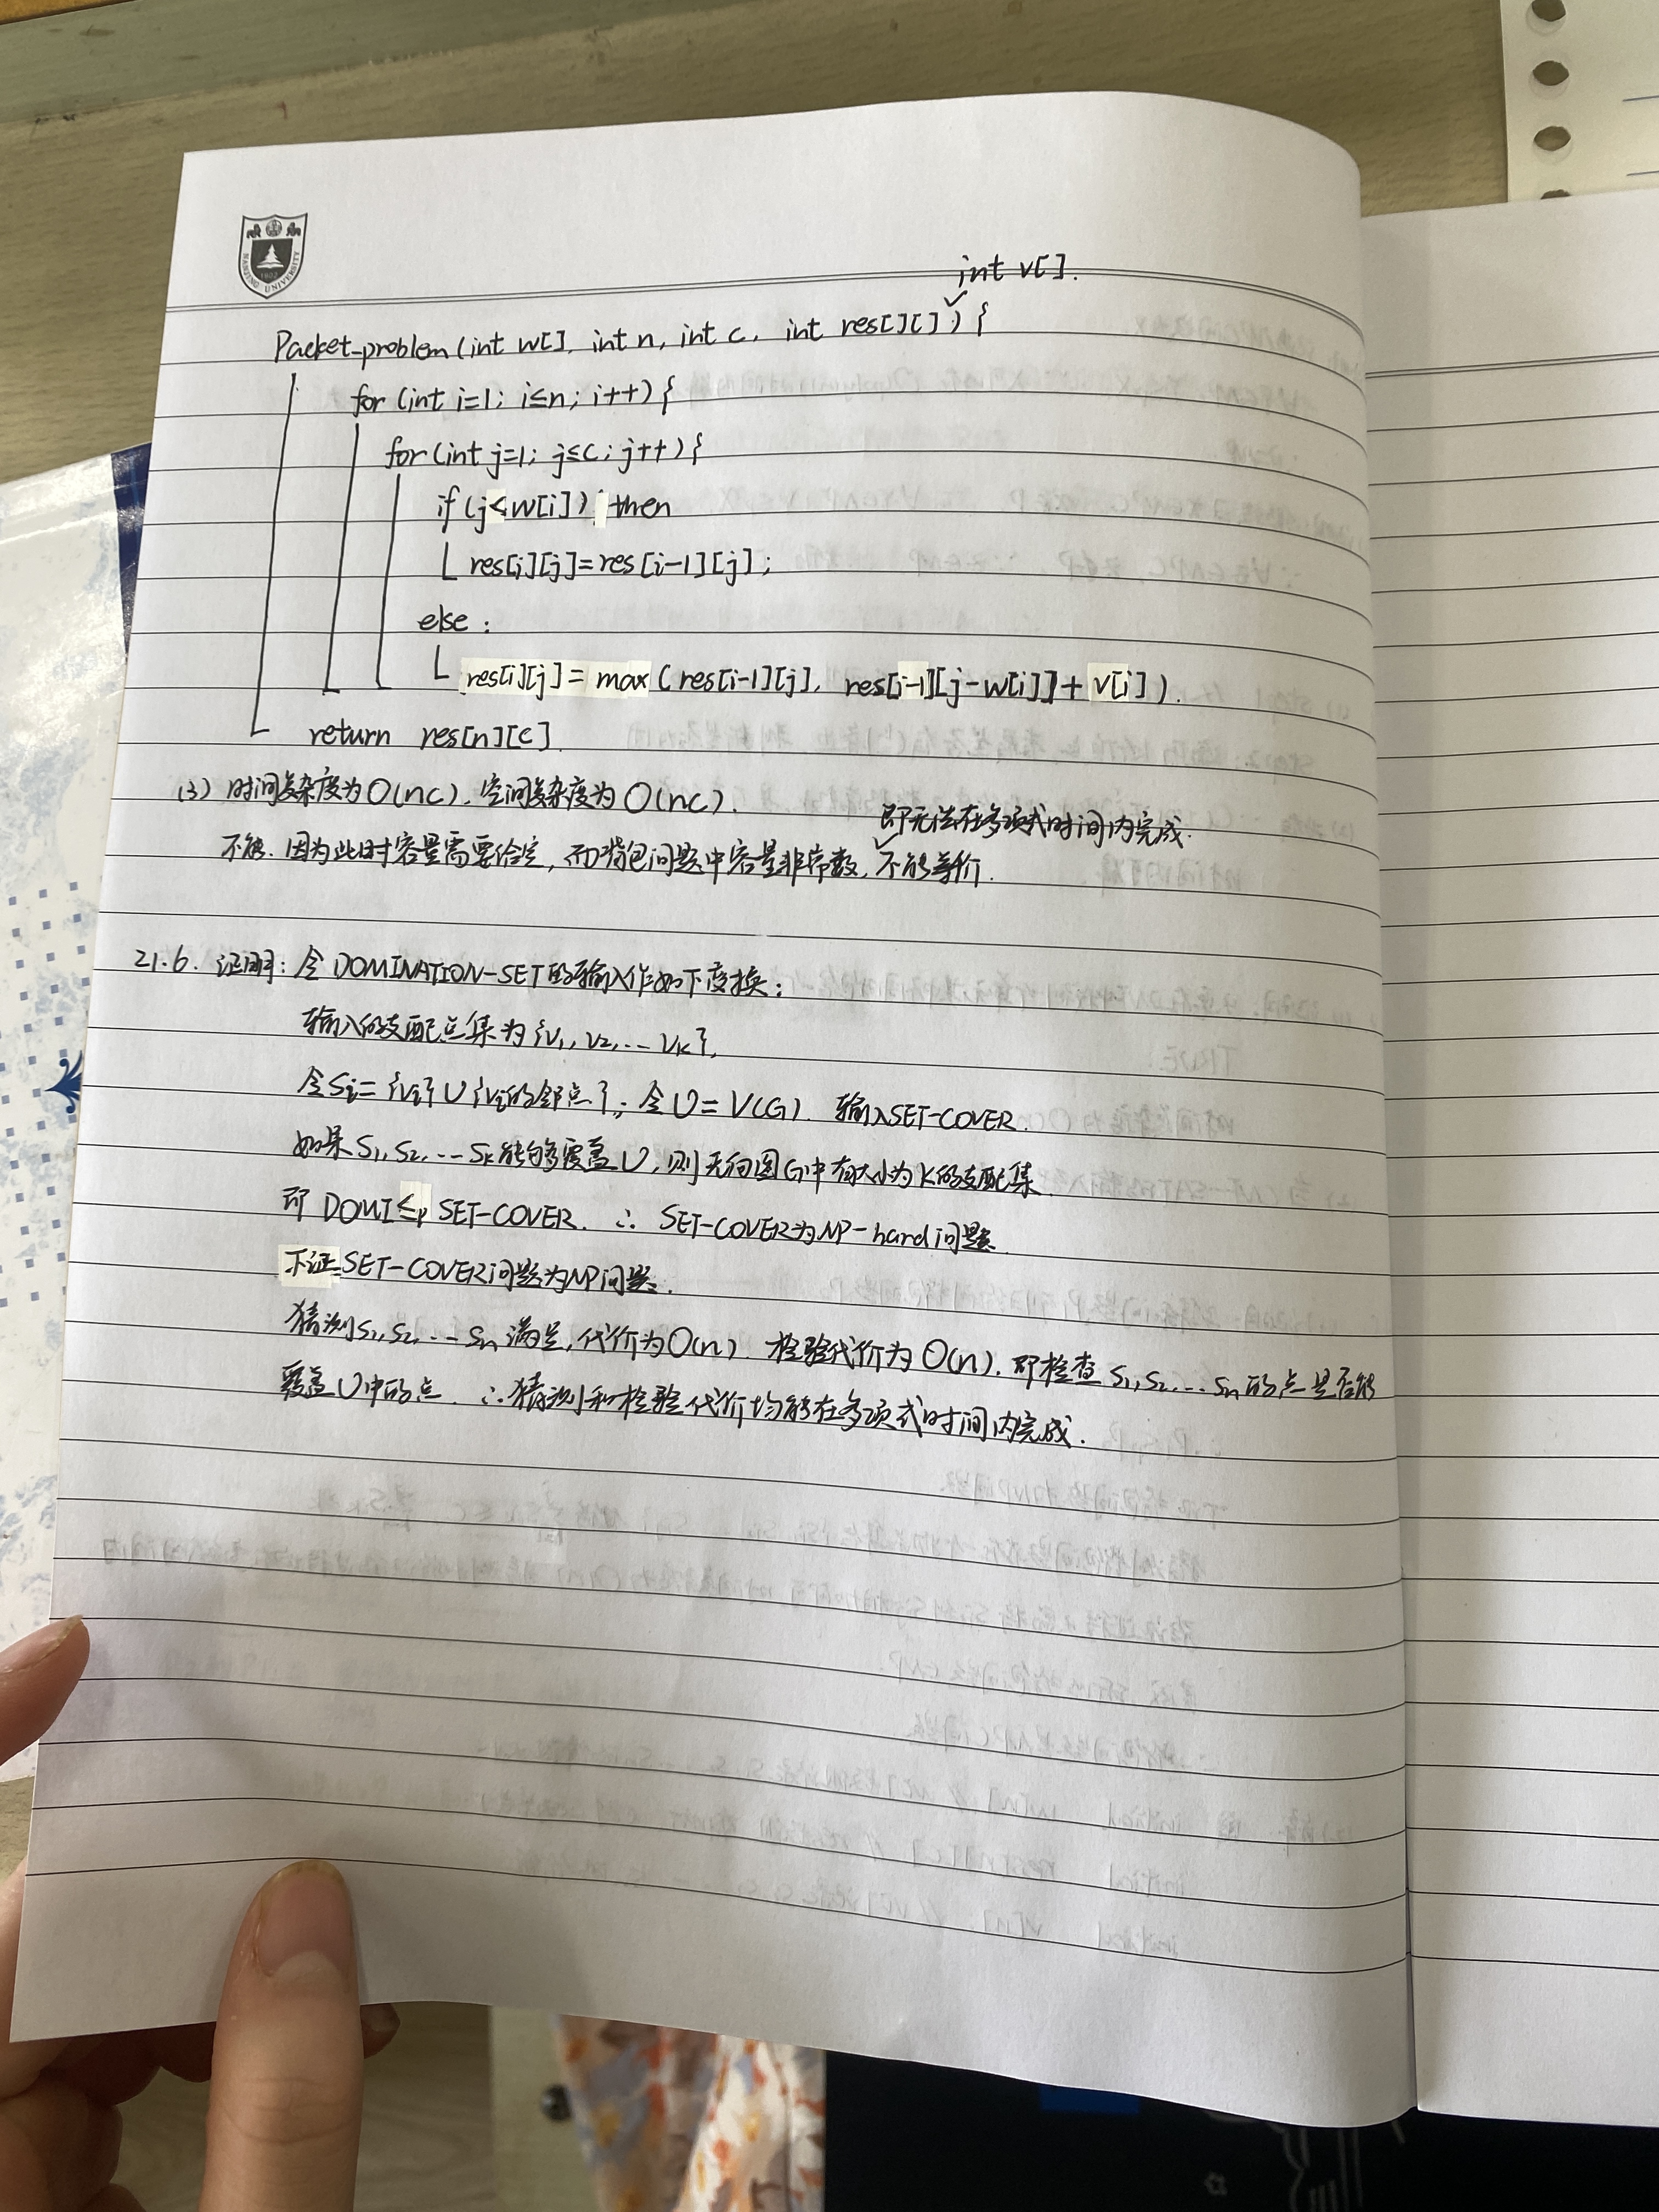 NANJING UNIVERSITY
1902
int v[].
Packet-problem(int w[], int n, int c, int res[][]) {
for (int i=1; i≤n; i++) {
for (int j=1; j≤c; j++) {
if (j<w[i]) then
res[i][j]=res[i-1][j];
else:
res[i][j]= max (res[i-1][j], res[i-1][j-w[i]]+ v[i]).
return res[n][c]
(3) 时间复杂度为O(nc), 空间复杂度为O(nc).
即无法在多项式时间内完成.
不能. 因为此时容量需要给定, 而背包问题中容量非常数, 不能等价.
21.6. 证明: 令DOMINATION-SET的输入作如下变换:
输入的支配点集为{v1, v2, ... vk},
令Si= {vi} ∪ {vi的邻点}; 令U= V(G). 输入SET-COVER.
如果S1, S2, ... Sk能够覆盖U, 则无向图G中有大小为k的支配集.
即 DOMI ≤p SET-COVER. ∴ SET-COVER为NP-hard问题.
下证SET-COVER问题为NP问题.
猜测S1, S2, ... Sn 满足, 代价为O(n). 检验代价为O(n), 即检查S1, S2, ... Sn的点是否能
覆盖U中的点. ∴猜测和检验代价均能在多项式时间内完成.